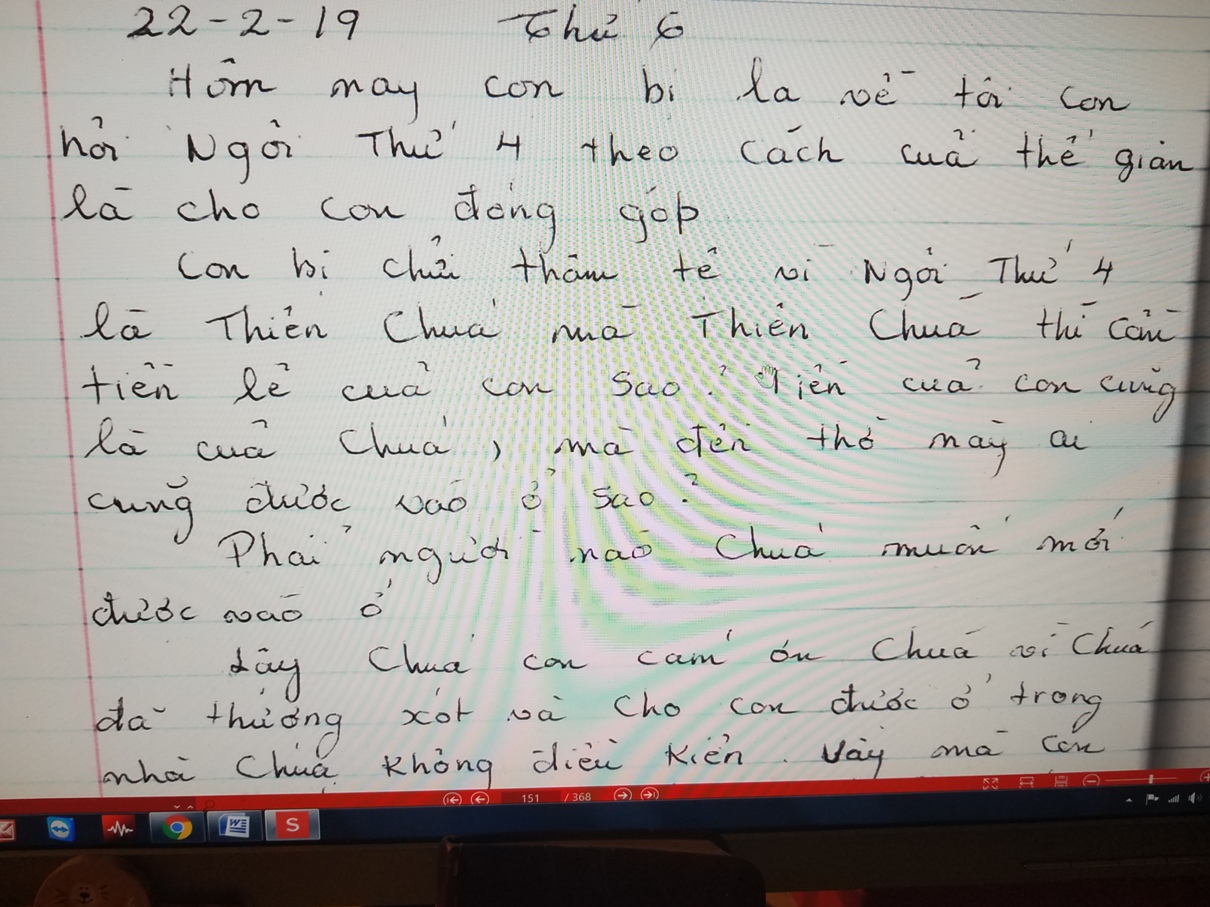 22-2-19 Thứ 6
Hôm nay con bị la về tội con
hỏi Ngôi Thứ 4 theo cách của thế gian
là cho con đóng góp
Con bị chửi thậm tệ vì Ngôi Thứ 4
là Thiên Chúa mà Thiên Chúa thì cần
tiền lẻ của con sao? Tiền của con cũng
là của Chúa, mà đền thờ này ai
cũng được vào ở sao?
Phải người nào Chúa muốn mới
được vào ở
Lạy Chúa con cám ơn Chúa vì Chúa
đã thương xót và cho con được ở trong
nhà Chúa không điều kiện. Vậy mà con
151 / 368